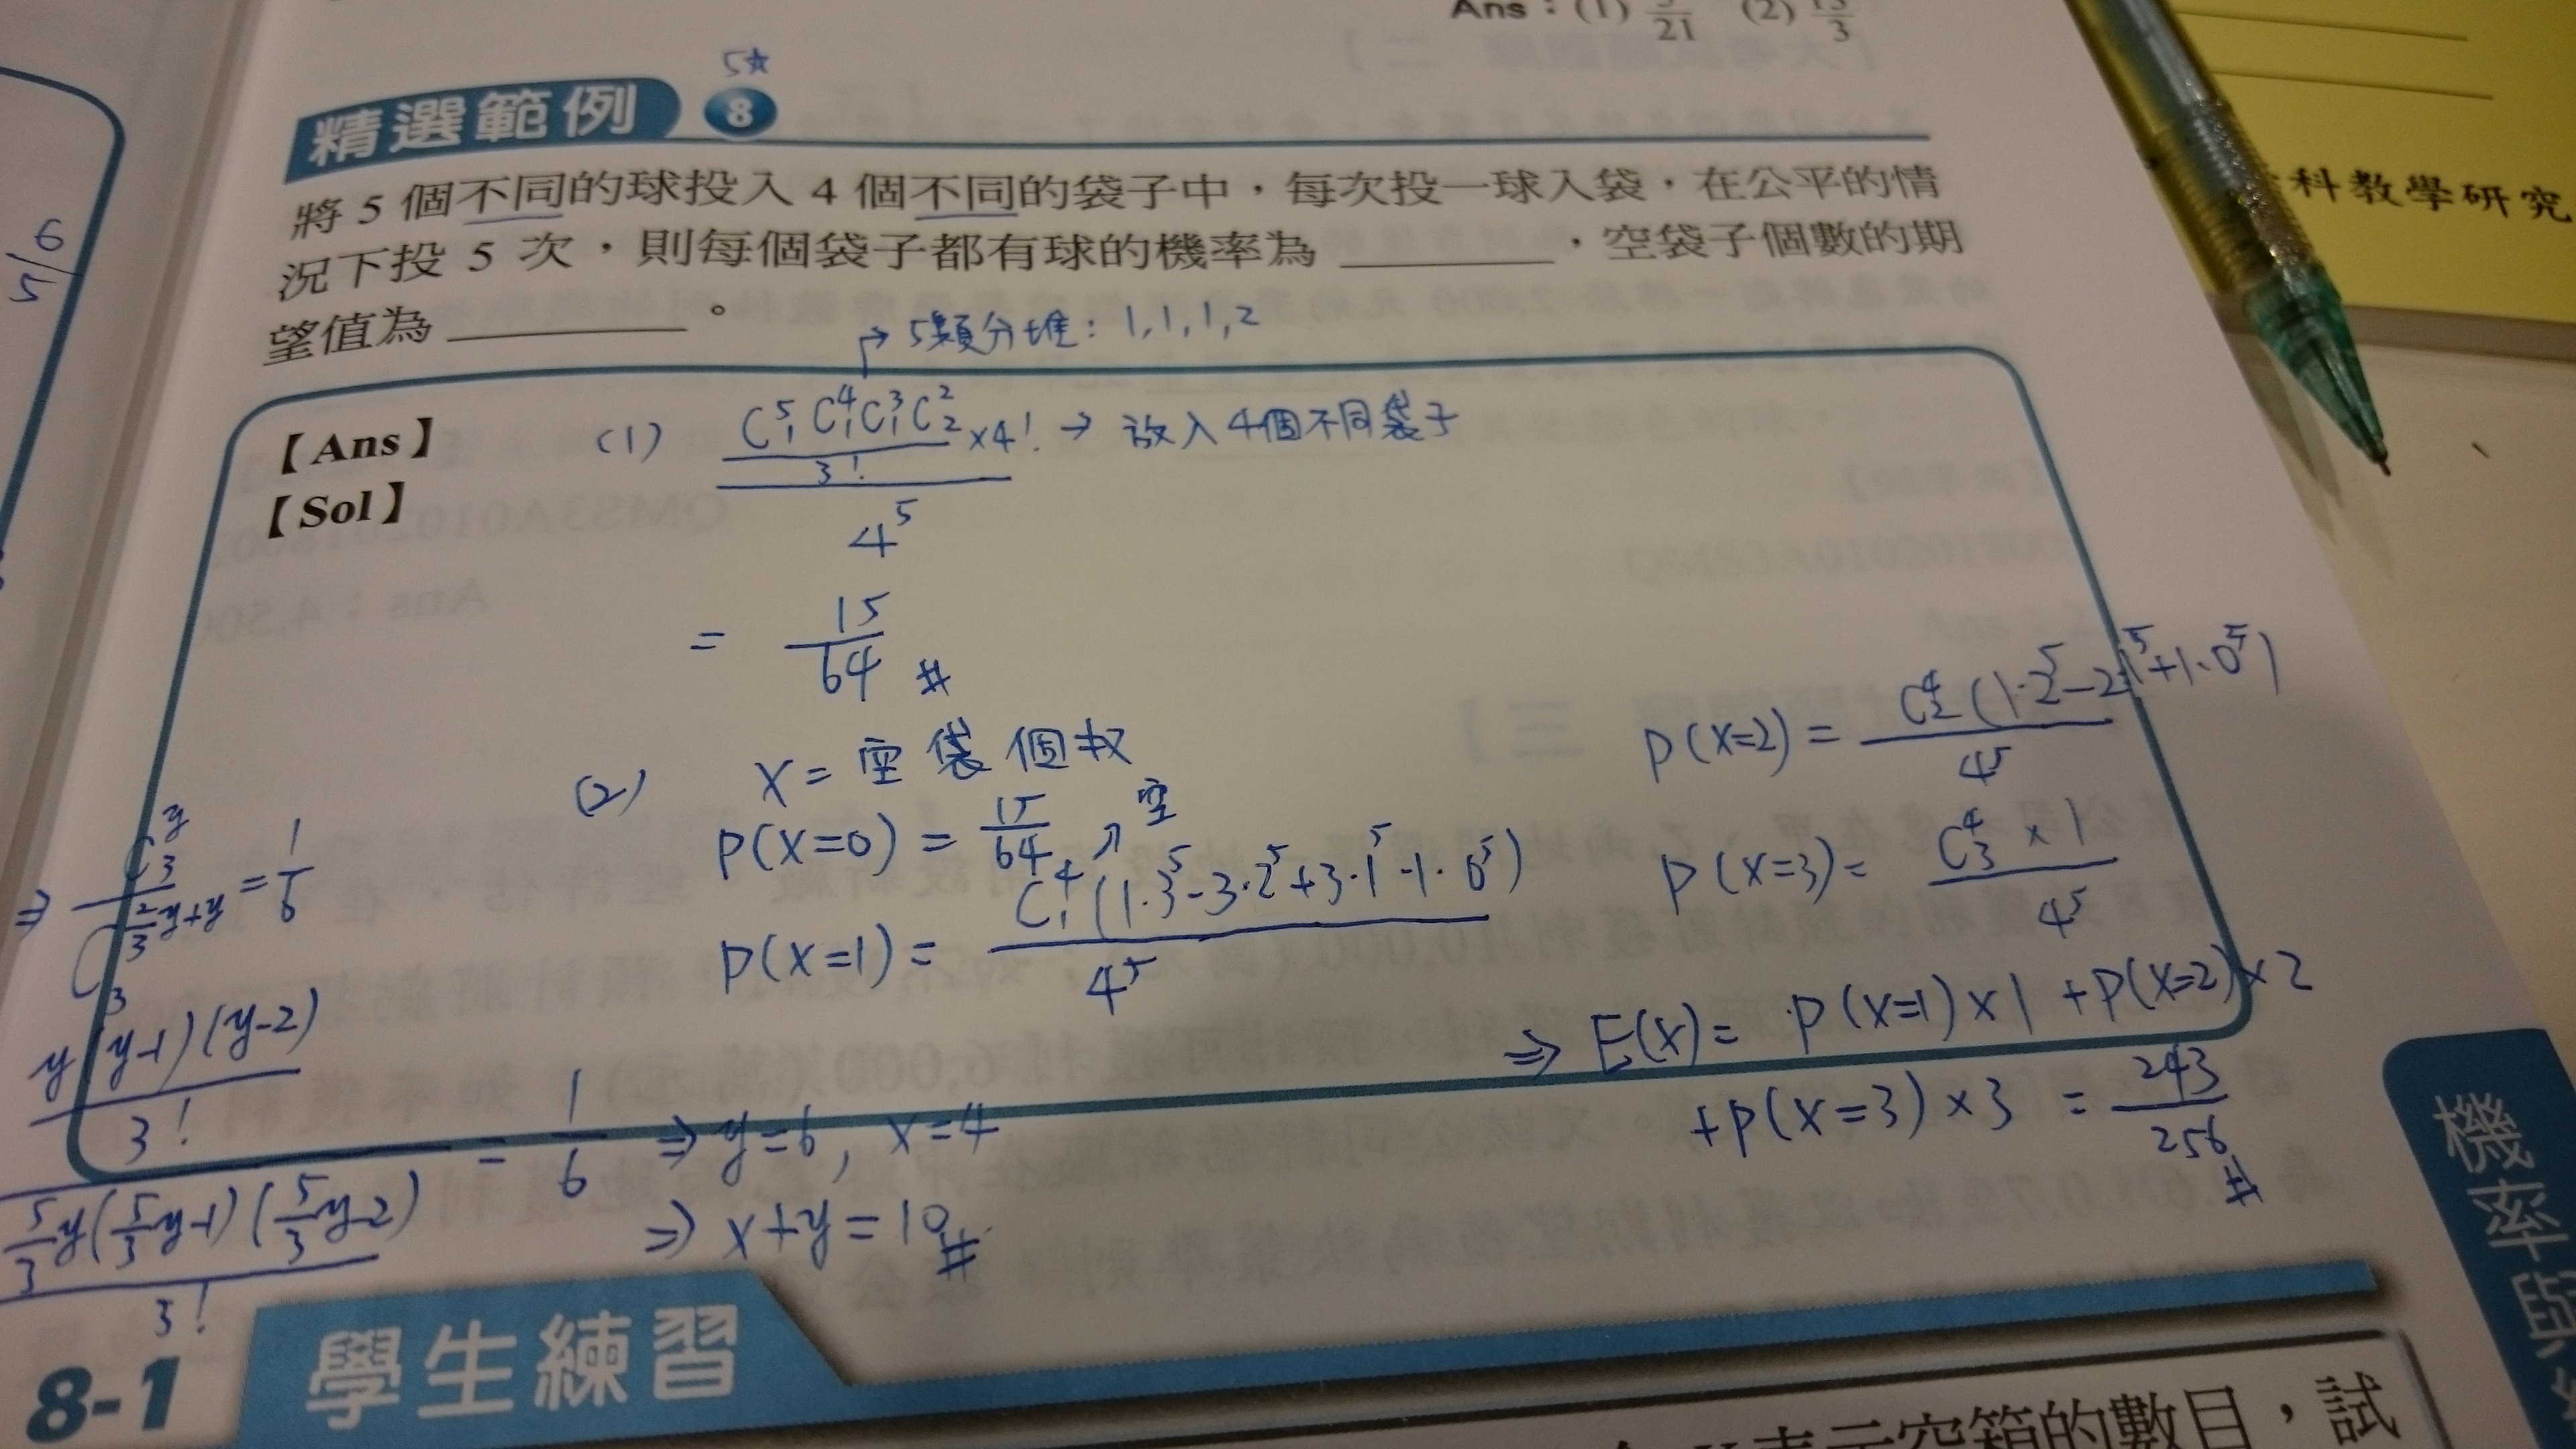 Ans：(1) 5/21 (2) 13/3
5☆
精選範例 8
將 5 個不同的球投入 4 個不同的袋子中，每次投一球入袋，在公平的情
況下投 5 次，則每個袋子都有球的機率為 ________，空袋子個數的期
望值為 ________。
→ 5類分堆：1,1,1,2
【Ans】
【Sol】
(1) ((C⁵₁C⁴₁C³₁C²₂)/3! ×4!)/4⁵ → 放入4個不同袋子
= 15/64 #
(2) X = 空袋個数
P(X=0) = 15/64
↗ 空
P(X=1) = C⁴₁(1·3⁵-3·2⁵+3·1⁵-1·0⁵)/4⁵
P(X=2) = C⁴₂(1·2⁵-2·1⁵+1·0⁵)/4⁵
P(X=3) = (C⁴₃×1)/4⁵
⇒ E(X) = P(X=1)×1 +P(X=2)×2
+P(X=3)×3 = 243/256 #
6/5
⇒ C^y_3 / C^(2/3y+y)_3 = 1/6
(y(y-1)(y-2)/3!) / (5/3y(5/3y-1)(5/3y-2)/3!) = 1/6 ⇒ y=6, x=4
⇒ x+y=10#
8-1 學生練習
表示空箱的數目，試
機率與
科教學研究